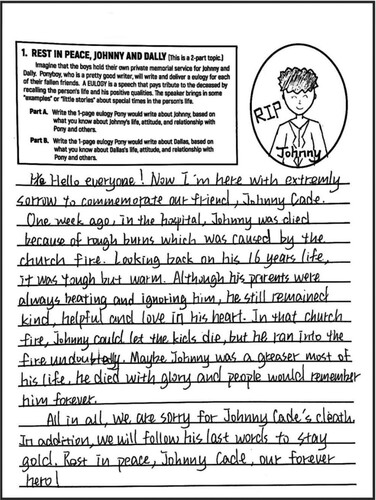 1. REST IN PEACE, JOHNNY AND DALLY (This is a 2-part topic.)
Imagine that the boys hold their own private memorial service for Johnny and
Dally. Ponyboy, who is a pretty good writer, will write and deliver a eulogy for each
of their fallen friends. A EULOGY is a speech that pays tribute to the deceased by
recalling the person's life and his positive qualities. The speaker brings in some
"examples" or "little stories" about special times in the person's life.
Part A. Write the 1-page eulogy Pony would write about Johnny, based on
what you know about Johnny's life, attitude, and relationship with
Pony and others.
Part B. Write the 1-page eulogy Pony would write about Dallas, based on
what you know about Dallas's life, attitude, and relationship with
Pony and others.
RIP
Johnny
Hello everyone! Now I'm here with extremely
sorrow to commemorate our friend, Johnny Cade.
One week ago, in the hospital, Johnny was died
because of rough burns which was caused by the
church fire. Looking back on his 16 years life,
it was tough but warm. Although his parents were
always beating and ignoring him, he still remained
kind, helpful and love in his heart. In that church
fire, Johnny could let the kids die, but he ran into the
fire undoubtedly. Maybe Johnny was a greaser most of
his life, he died with glory and people would remember
him forever.
All in all, we are sorry for Johnny Cade's death.
In addition, we will follow his last words to stay
gold. Rest in peace, Johnny Cade, our forever
hero!